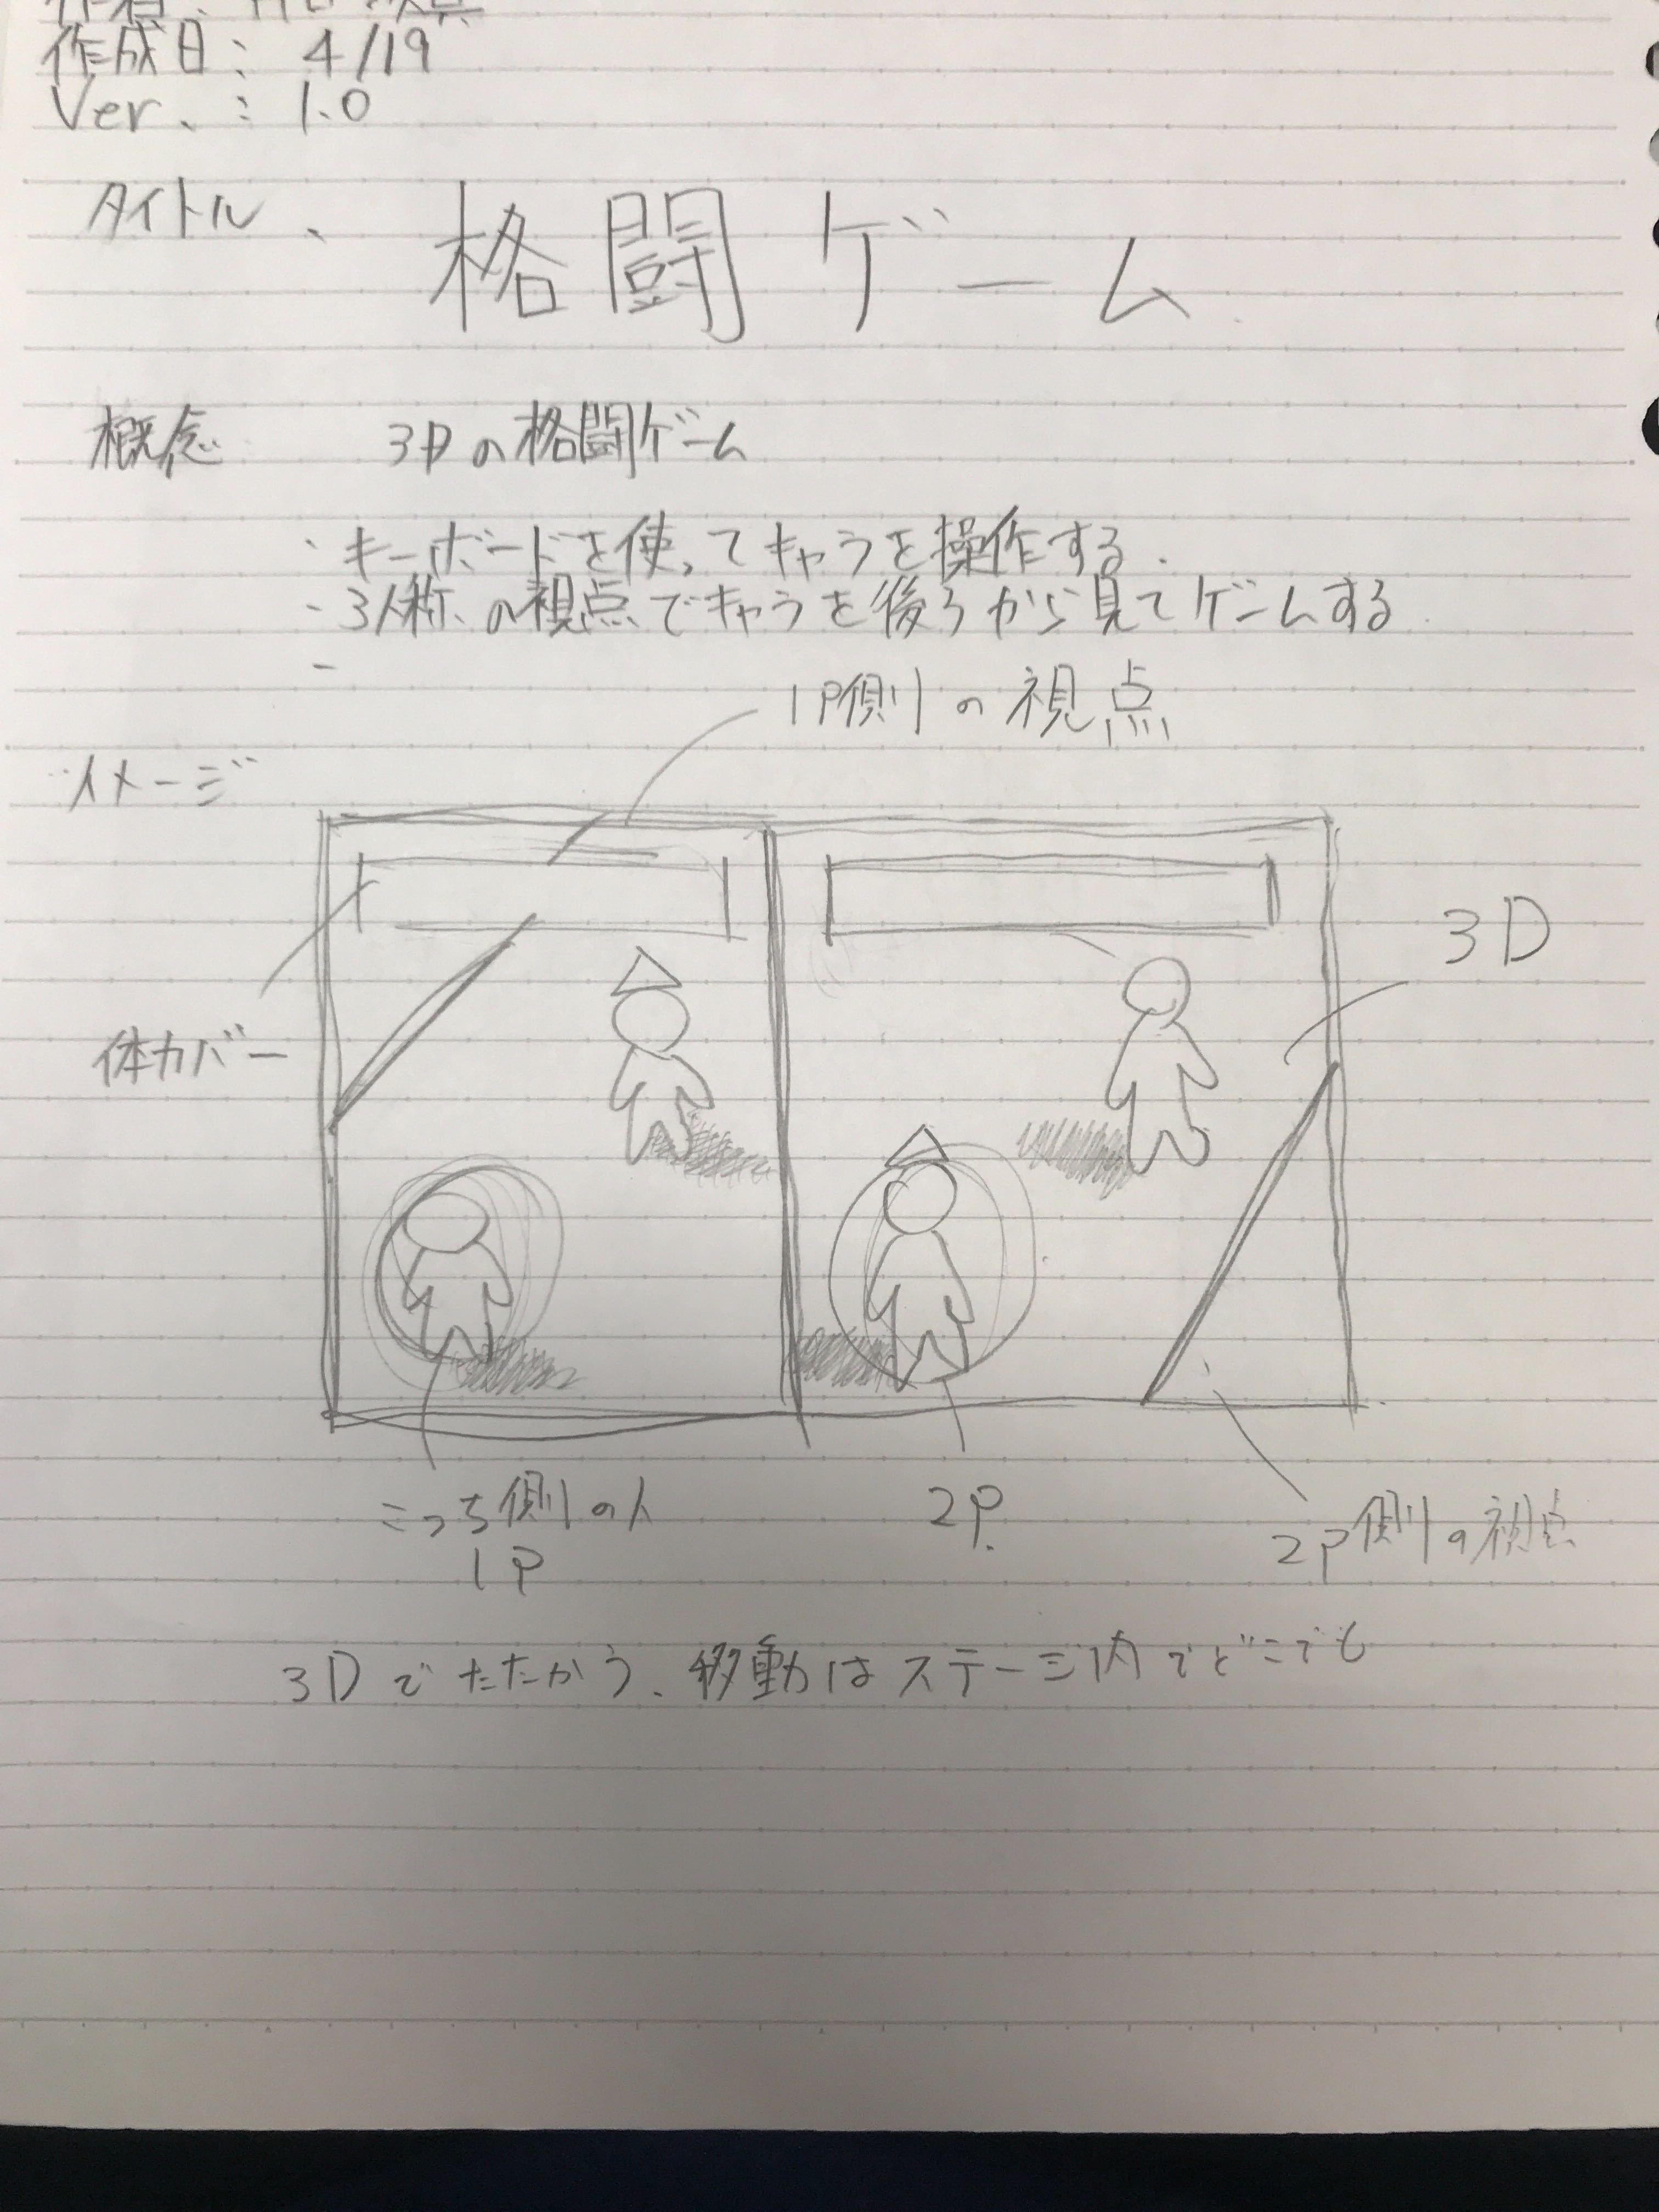 作成日: 4/19
Ver.: 1.0
タイトル、 格闘ゲーム
概念 3Dの格闘ゲーム
・キーボードを使ってキャラを操作する.
・3人称の視点でキャラを後ろから見てゲームする
-
1P側の視点
イメージ
3D
体力バー
こっち側の人
1P
2P.
2P側の視点
3Dでたたかう、移動はステージ内でどこでも